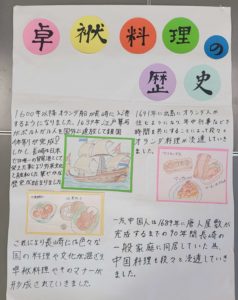 卓袱料理の
歴史
1600年以降オランダ船が長崎に入港
するようになりました。1639年、江戸幕府
がポルトガル人を国外に追放して鎖国
体制が完成?
しかし長崎は日本
で唯一の貿易港として
歴史が始まりました
これにより長崎には色々な
国の料理や文化が混ざり
卓袱料理やそのマナーが
形成されていきました。
1641年に出島にオランダ人が
住むようになって年中行事などを
時間を共にすることによって段々と
オランダ料理が浸透してい
きました。
一方、中国人は1689年に唐人屋敷が
完成するまでの90年間長崎の
一般家庭に同居していた為、
中国料理も段々と浸透していき
ました。